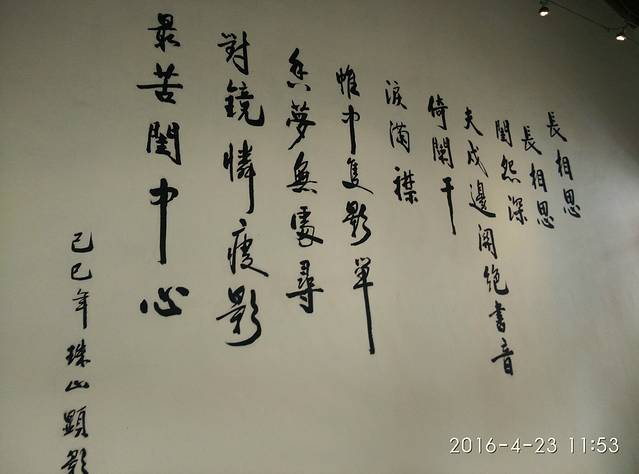 長相思
長相思
閨怨深
夫戍邊關絕書音
倚闌干
淚滿襟
帷中隻影單
夢無處尋
對鏡憐瘦影
最苦閨中心
己巳年珠山顯影
2016-4-23 11:53